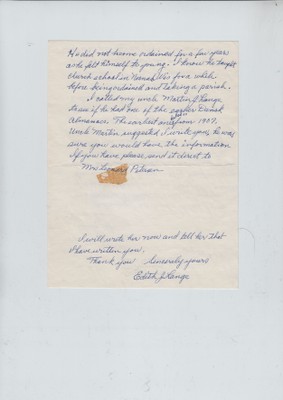 He did not become ordained for a few years
as he felt himself to young. I know he taught
church school in Nenah Wis five weeks
before being ordained and taking a parish.
I called my uncle Martin J Range
to see if he had one of the earlier Danish
Almanacs. The earliest was from 1909.
Uncle Martin suggested I write you, he was
sure you would have the information
If you have please send it direct to
Mrs Petersen
I will write her now and tell her that
I have written you.
Thank you Sincerely yours
Edith J Range